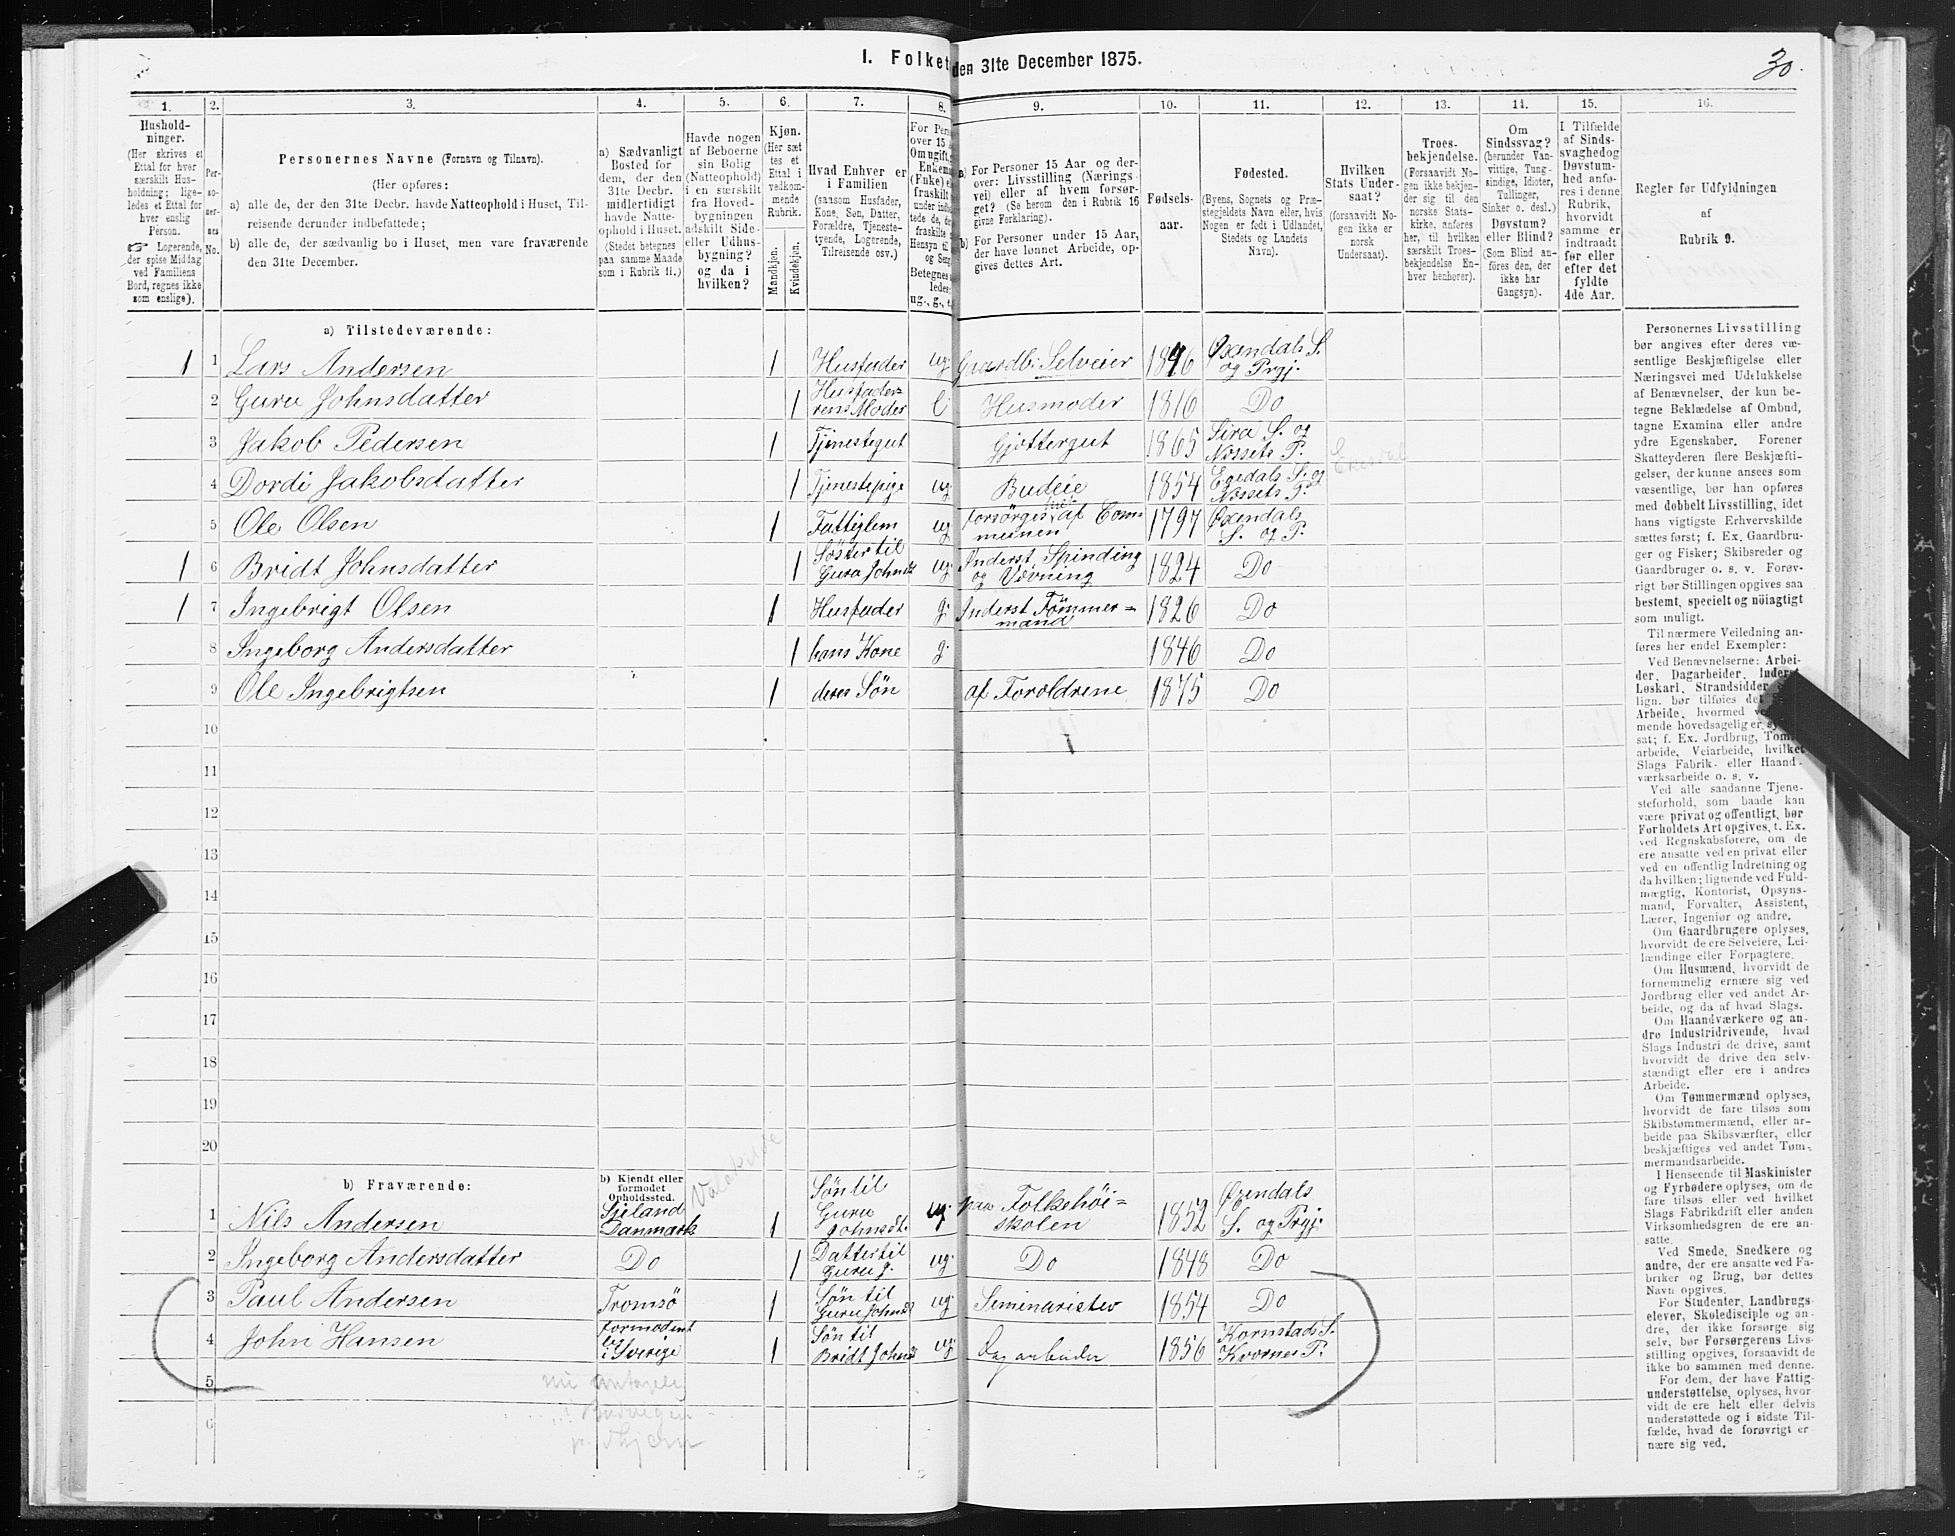 I. Folket
den 31te December 1875.
30.
1. 2. 3. 4. 5. 6. 7. 8. 9. 10. 11. 12. 13. 14. 15. 16.
Hushold-
ninger.
(Her skrives et
Ettal for hver
særskilt Hus-
holdning; lige-
ledes et Ettal for
hver enslig
Person.
☞ Logerende,
der spise Middag
ved Familiens
Bord, regnes ikke
som enslige).
Per-
so-
ner-
nes
No.
Personernes Navne (Fornavn og Tilnavn).
(Her opføres:
a) alle de, der den 31te Decbr. havde Natteophold i Huset, Til-
reisende derunder indbefattede;
b) alle de, der sædvanlig bo i Huset, men vare fraværende
den 31te December.
a) Sædvanligt
Bosted for
dem, der den
31te Decbr.
midlertidigt
havde Natte-
ophold i Huset.
(Stedet betegnes
paa samme Maade
som i Rubrik 11.)
Havde nogen
af Beboerne
sin Bolig
(Natteophold)
i en særskilt
fra Hoved-
bygningen
adskilt Side-
eller Udhus-
bygning?
og da i
hvilken?
Kjøn.
(Her sæt
tes et
Ettal i
vedkom-
mende
Rubrik.
Mandkjøn.
Kvindekjøn.
Hvad Enhver er
i Familien
(saasom Husfader,
Kone, Søn, Datter,
Forældre, Tjeneste-
tyende, Logerende,
Tilreisende osv.)
For Pers
over 15
Om ugift,
Enkem
(Enke) e
fraskilt
under indb
tede de, d
fraskilte
Hensyn til
og Seng
Betegnes
ledes:
ug., g., e
a) For Personer 15 Aar og der-
over: Livsstilling (Nærings
vei) eller af hvem forsør-
get? (Se herom den i Rubrik 16
givne Forklaring).
b) For Personer under 15 Aar,
der have lønnet Arbeide, op-
gives dettes Art.
Fødsels-
aar.
Fødested.
(Byens, Sognets og Præ-
stegjeldets Navn eller, hvis
Nogen er født i Udlandet,
Stedets og Landets
Navn).
Hvilken
Stats Under-
saat?
(forsaavidt No-
gen ikke er
norsk
Undersaat).
Troes-
bekjendelse.
(Forsaavidt No-
gen ikke bekjen-
der sig til den
norske Stats-
kirke, anføres
her, til hvilken
særskilt Troes-
bekjendelse En-
hver henhører).
Om
Sindssvag?
(herunder Van-
vittige, Tung-
sindige, Idioter,
Tullinger,
Sinker o. desl.)
Døvstum?
eller Blind?
(Som Blind an-
føres den, der
ikke har
Gangsyn).
I Tilfælde
af Sinds-
svaghed og
Døvstum-
hed anfø-
res i denne
Rubrik,
hvorvidt
samme er
indtraadt
før eller
efter det
fyldte
4de Aar.
Regler for Udfyldningen
af
Rubrik 9.
a) Tilstedeværende:
1 1 Lars Andersen 1 Husfader ug. Gaardb. Selveier 1846 Øxendals S. og Prgj.
2 Guru Johnsdatter 1 Husfaderens Moder e Husmoder 1816 Do
3 Jakob Pedersen 1 Tjenestegut Gjætergut 1865 Sira S. og Nessets P.
4 Dordi Jakobsdatter 1 Tjenestepige ug. Budeie 1854 Eresdals S. og Nessets P.
5 Ole Olsen 1 Fattiglem ug. forsørges af Communen 1797 Øxendals S. og P.
1 6 Bridt Johnsdatter 1 Søster til Guru Johnsdt ug. Inderst Spinding og Vævning 1824 Do
1 7 Ingebrigt Olsen 1 Husfader g. Inderst Tømmermand 1826 Do
8 Ingeborg Andersdatter 1 hans Kone g. 1846 Do
9 Ole Ingebrigtsen 1 deres Søn af Forældrene 1875 Do
10
11
12
13
14
15
16
17
18
19
20
b) Fraværende:
b) Kjendt eller
formodet
Opholdssted.
1 Nils Andersen Sjeland Danmark 1 Søn til Guru Johnsdt. ug. paa Folkehøiskolen 1852 Øxendals S. og Prgj.
2 Ingeborg Andersdatter Do 1 Datter til Guru J. ug. Do 1848 Do
3 Paul Andersen Tromsö 1 Søn til Guru Johnsdt ug. Seminarielev 1854 Do
4 John Hansen formodent i Sverige 1 Søn til Bridt Johnsdt ug. Dagarbeider 1856 Kornstads S. Kvernes P.
5
6
Personernes Livsstilling
bør angives efter deres væ-
sentlige Beskjæftigelse eller
Næringsvei med Udelukkelse
af Benævnelser, der kun be-
tegne Beklædelse af Ombud,
tagne Examina eller andre
ydre Egenskaber. Forener
Skatteyderen flere Beskjæfti-
gelser, der kunne ansees som
væsentlige, bør han opføres
med dobbelt Livsstilling, idet
hans vigtigste Erhvervskilde
sættes først; f. Ex. Gaardbru-
ger og Fisker; Skibsreder og
Gaardbruger o. s. v. Forøv-
rigt bør Stillingen opgives saa
bestemt, specielt og nöiagtigt
som muligt.
Til nærmere Veiledning an-
føres her endel Exempler:
Ved Benævnelserne: Arbei-
der, Dagarbeider, Inderst,
Løskarl, Strandsidder
lign. bør tilføies det
Arbeide, hvormed
mende hovedsagelig er
sat; f. Ex. Jordbrug,
arbeide, Veiarbeide, hvilket
Slags Fabrik- eller Haand-
værksarbeide o. s. v.
Ved alle saadanne Tjene-
steforhold, som baade kan
være privat og offentligt, bør
Forholdets Art opgives, t. Ex.
ved Regnskabsførere, om de
ere ansatte ved en privat eller
ved en offentlig Indretning og
da hvilken; lignende ved Fuld-
mægtig, Kontorist, Opsyns-
mand, Forvalter, Assistent,
Lærer, Ingeniør og andre.
Om Gaardbrugere oplyses,
hvorvidt de ere Selveiere, Lei-
lændinge eller Forpagtere.
Om Husmænd, hvorvidt de
fornemmelig ernære sig ved
Jordbrug eller ved andet Ar-
beide, og da af hvad Slags.
Om Haandværkere og an-
dre Industridrivende, hvad
Slags Industri de drive, samt
hvorvidt de drive den selv-
stændigt eller ere i andres
Arbeide.
Om Tømmermænd oplyses,
hvorvidt de fare tilsøs som
Skibstømmermænd, eller ar-
beide paa Skibsværfter, eller
beskjæftiges ved andet Tøm-
mermandsarbeide.
I Henseende til Maskinister
og Fyrbødere oplyses, om de
fare tilsøs eller ved hvilket
Slags Fabrikdrift eller anden
Virksomhedsgren de ere an-
satte.
Ved Smede, Snedkere og
andre, der ere ansatte ved Fa-
briker og Brug, bør dettes
Navn opgives.
For Studenter, Landbrugs-
elever, Skoledisciple og an-
dre, der ikke forsørge sig
selv, bør Forsørgerens Livs-
stilling opgives, forsaavidt de
ikke bo sammen med denne.
For dem, der have Fattig-
understøttelse, oplyses, hvor
vidt de ere helt eller delvis
understøttede og i sidste Til-
fælde, hvad de forøvrigt er
nære sig ved.